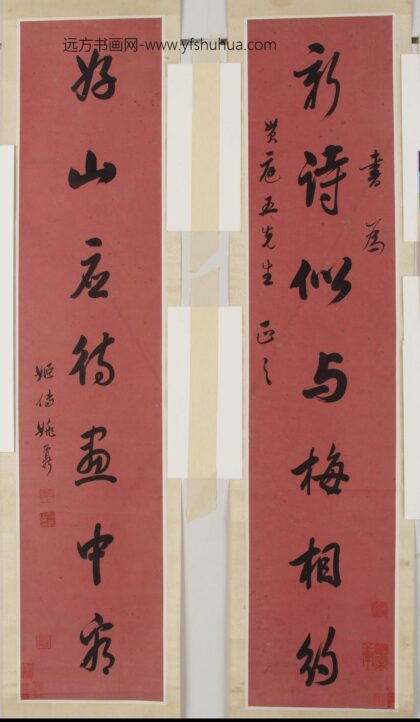 远方书画网-www.yfshuhua.com
書為
新诗似与梅相约
五先生 正之
好山应待画中
姬傳姚鼐